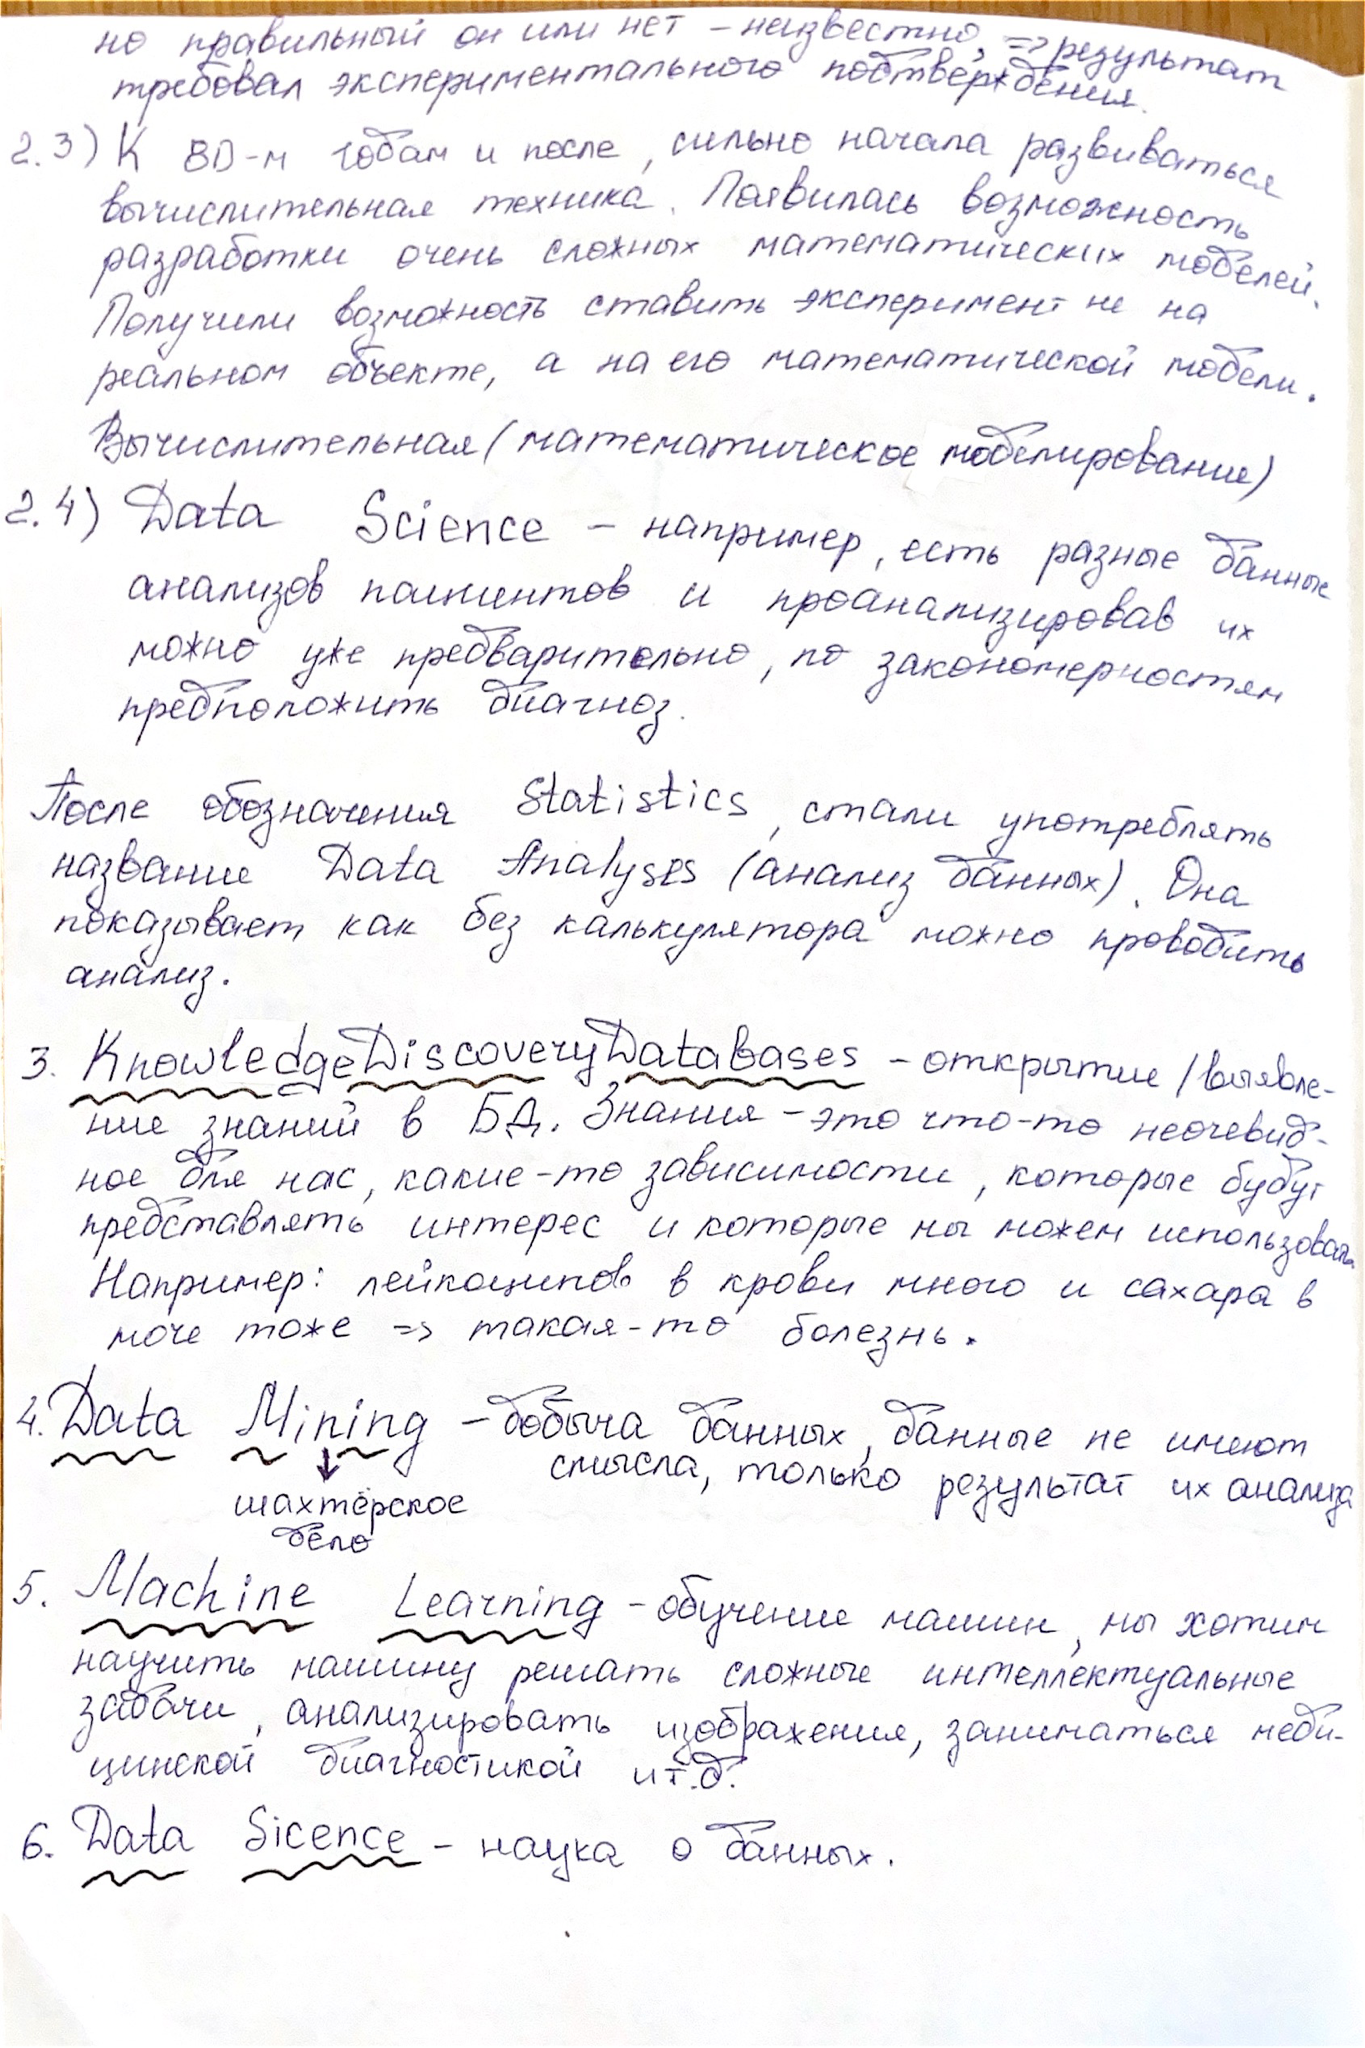 но правильный он или нет – неизвестно, => результат
требовал экспериментального подтверждения.
2.3) К 80-м годам и после, сильно начала развиваться
вычислительная техника. Появилась возможность
разработки очень сложных математических моделей.
Получили возможность ставить эксперимент не на
реальном объекте, а на его математической модели.
Вычислительная (математическое моделирование)
2.4) Data Science – например, есть разные данные
анализов пациентов и проанализировав их
можно уже предварительно, по закономерностям
предположить диагноз.
После обозначения Statistics, стали употреблять
название Data Analyses (анализ данных). Она
показывает как без калькулятора можно проводить
анализ.
3. Knowledge Discovery Databases – открытие / выявле-
ние знаний в БД. Знания – это что-то неочевид-
ное для нас, какие-то зависимости, которые будут
представлять интерес и которые мы можем использовать.
Например: лейкоцитов в крови много и сахара в
моче тоже => такая-то болезнь.
4. Data Mining – добыча данных, данные не имеют
смысла, только результат их анализа
↓
шахтёрское
дело
5. Machine Learning – обучение машин, мы хотим
научить машину решать сложные интеллектуальные
задачи, анализировать изображения, заниматься меди-
цинской диагностикой и т.д.
6. Data Sicence – наука о данных.